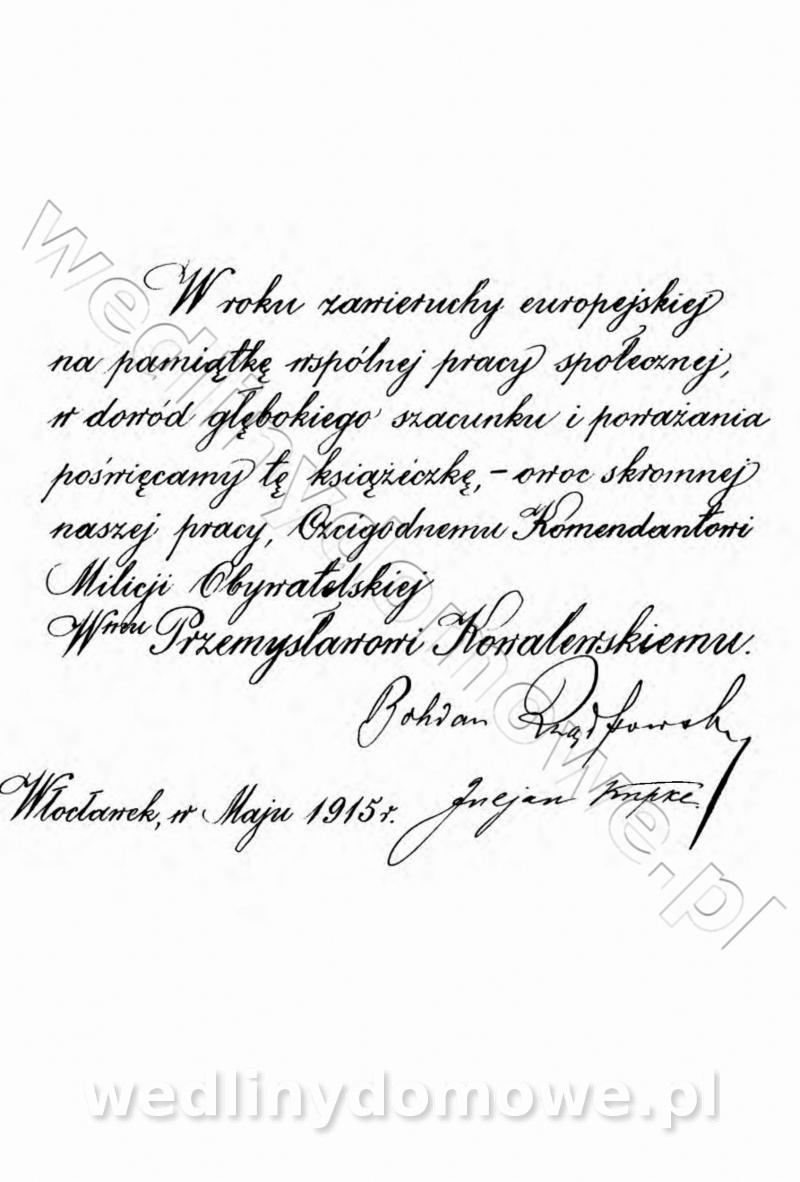 W roku zawieruchy europejskiej
na pamiątkę wspólnej pracy społecznej,
w dowód głębokiego szacunku i poważania
poświęcamy tę książeczkę, – owoc skromnej
naszej pracy, Czcigodnemu Komendantowi
Milicji Obywatelskiej
Wnemu Przemysławowi Kowalewskiemu.
Bohdan
Włocławek, w Maju 1915 r.
wedlinydomowe.pl
wedlinydomowe.pl